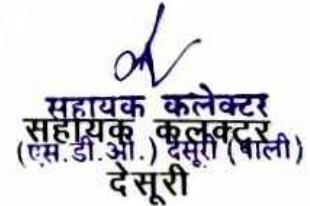 सहायक कलेक्टर
सहायक कलक्टर
(एस.डी.ओ.) देसूरी (पाली)
देसूरी